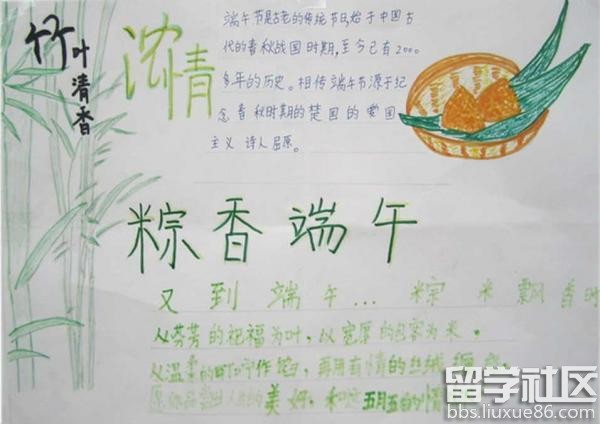 竹叶清香
浓情
端午节是古老的传统节日,始于中国古
代的春秋战国时期,至今已有2000
多年的历史。相传端午节源于纪
念春秋时期的楚国的爱国
主义诗人屈原。
粽香端午
又到端午...粽米飘香时
以芬芳的祝福为叶,以宽厚的包容为米。
以温柔的叮咛作馅,再用友情的丝绒缠绕,
愿你品尝出人间的美好,和这五月五的情
留学社区
bbs.liuxue86.com